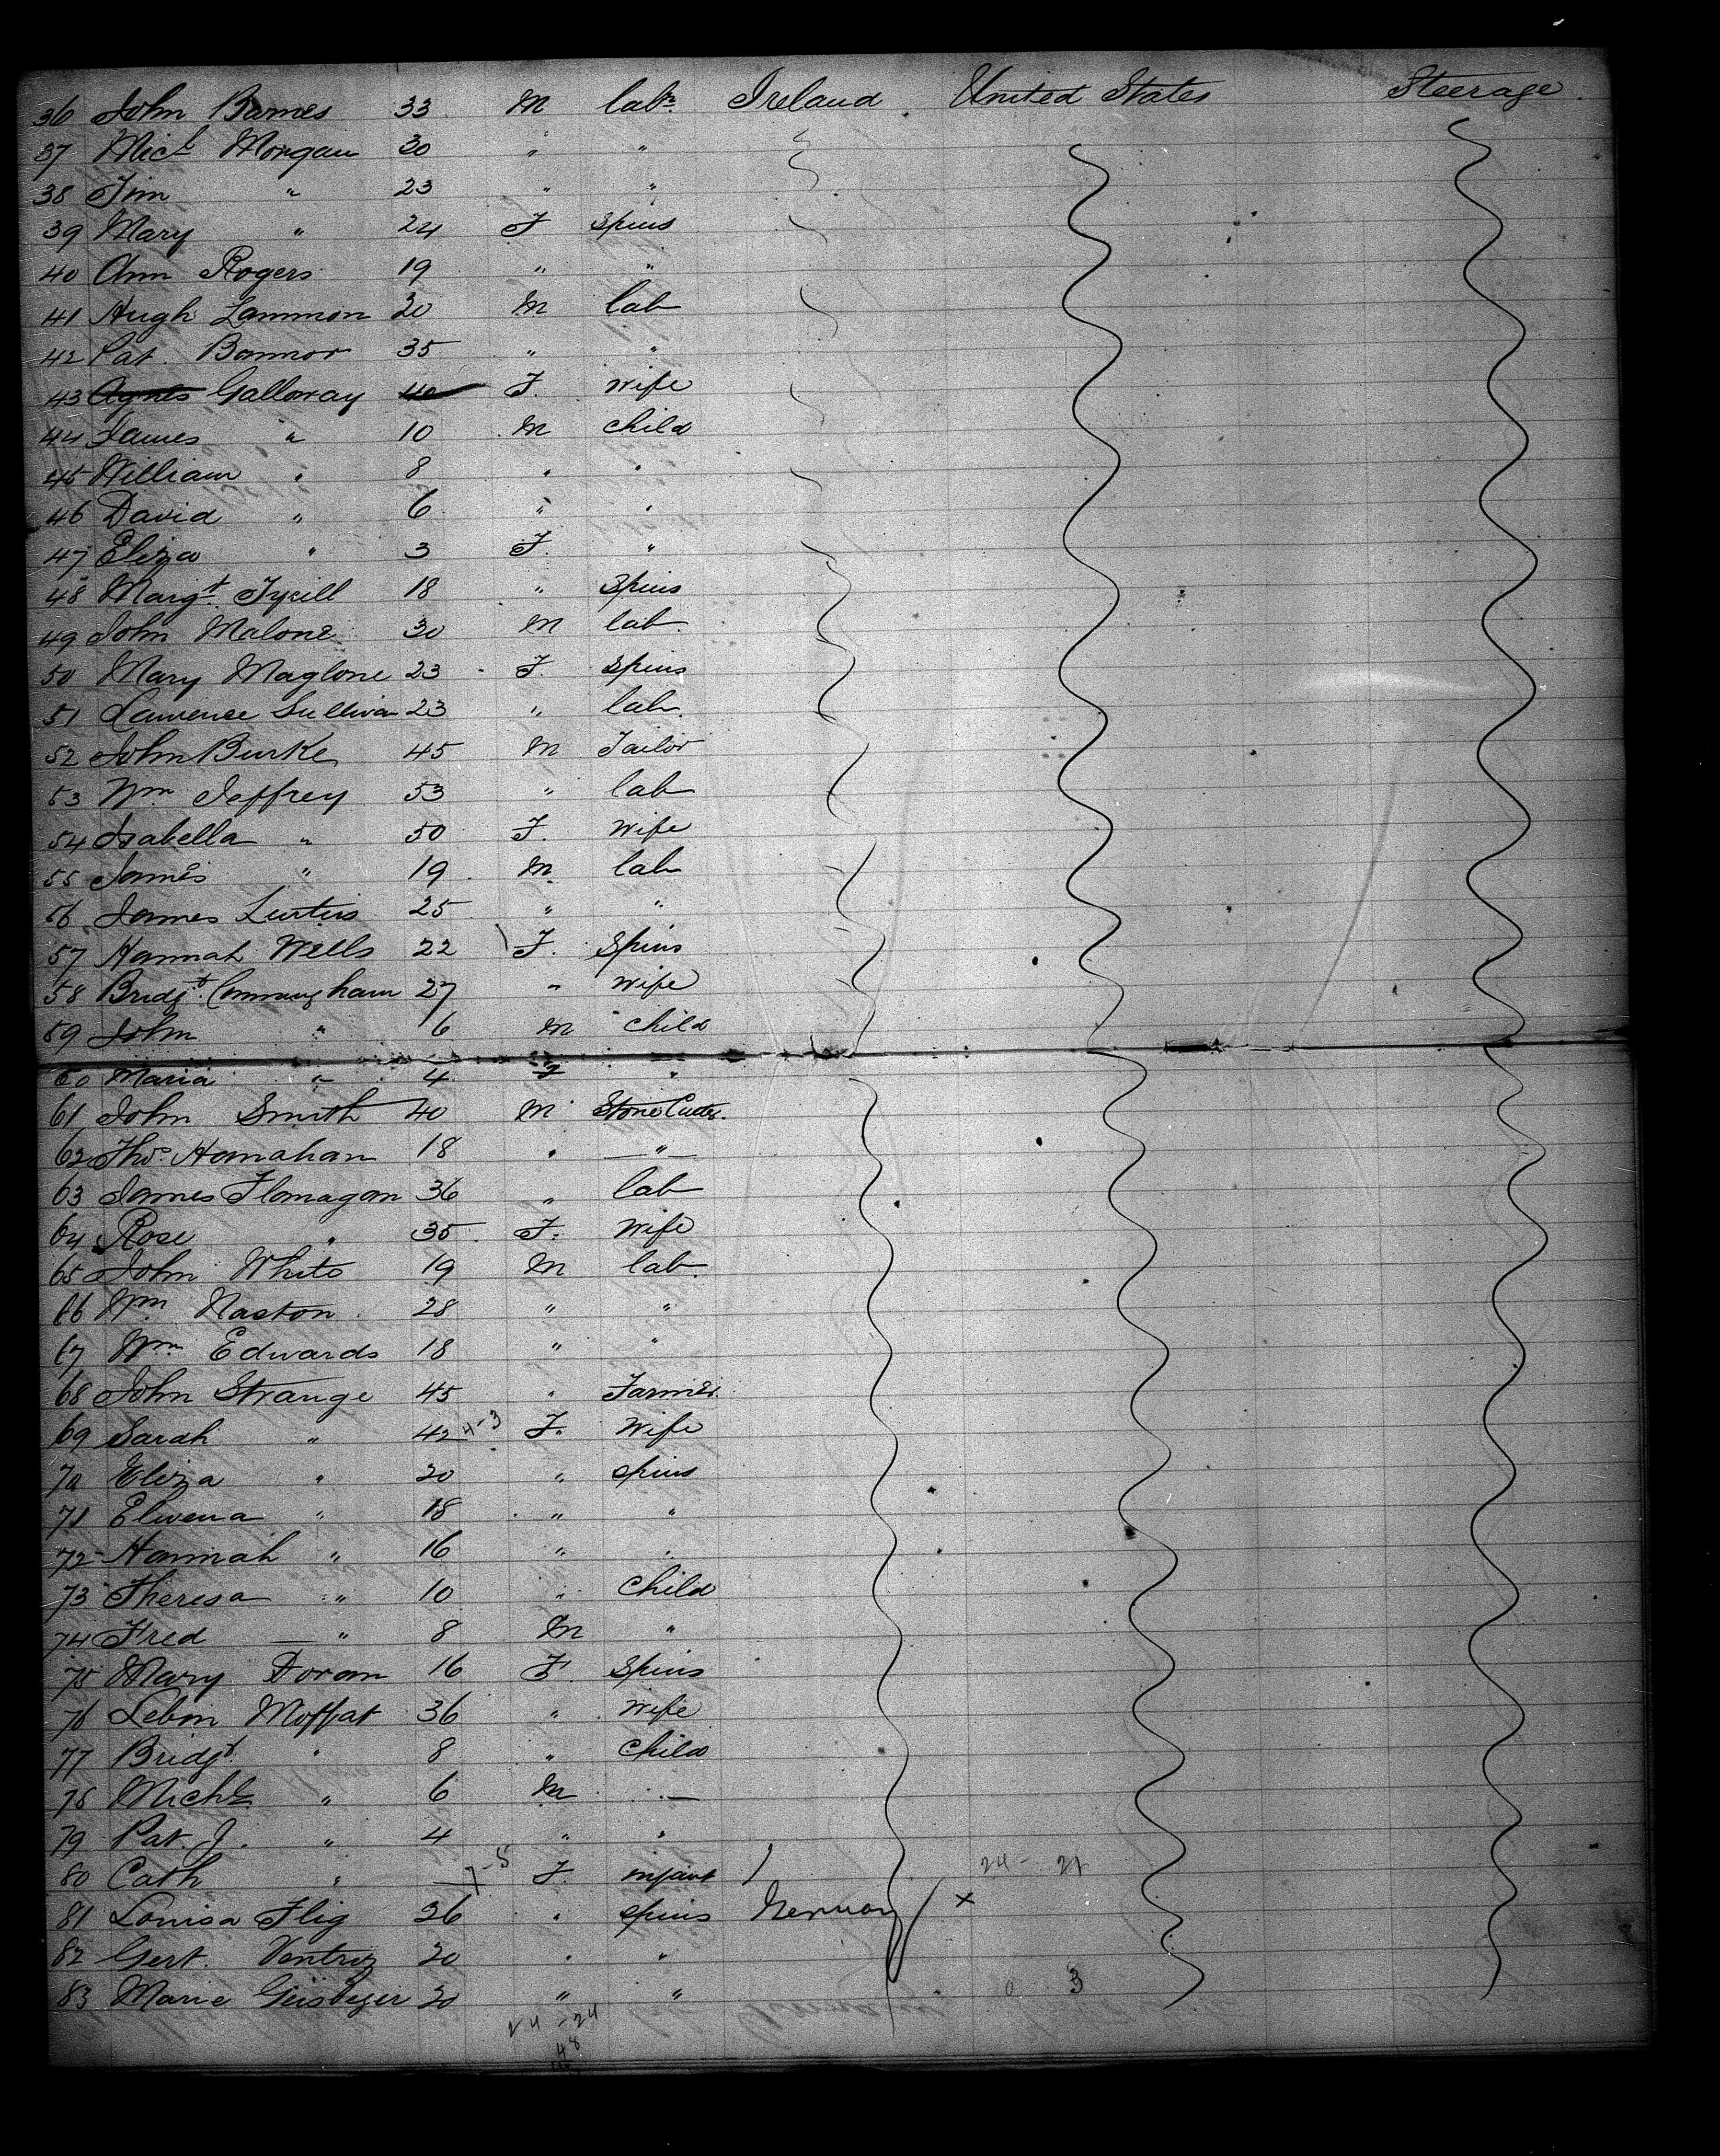 36 John Barnes 33 M labr Ireland United States Steerage
37 Micl Morgan 30 " "
38 Jim " 23 " "
39 Mary " 24 F Spins
40 Ann Rogers 19 " "
41 Hugh Lammon 20 M lab
42 Pat. Bannor 35 " "
43 Agnes Galloway 40 F. wife
44 James " 10 M child
45 William " 8 " "
46 David " 6 " "
47 Eliza " 3 F. "
48 Margt 18 " Spins
49 John Malone 30 M lab.
50 Mary Maglone 23 F. Spins
51 Lawrence Sullivan 23 " lab.
52 John Burke 45 M Tailor
53 Wm Jeffrey 53 " lab
54 Isabella " 50 F. wife
55 James " 19 M lab
56 James 25 " "
57 Hannah Wells 22 F. Spins
58 Bridjt. Cunningham 27 " wife
59 John " 6 M child
60 Maria " 4 F "
61 John Smith 40 M Stone Cutter.
62 Thos. Hanahan 18 " "
63 James Flanagan 36 " lab
64 Rose " 35 F. wife
65 John White 19 M lab.
66 Wm Naston 28 " "
67 Wm Edwards 18 " "
68 John Strange 45 " Farmer
69 Sarah " 42 4-3 F. Wife
70 Eliza " 20 " spins
71 Elwena " 18 " "
72 Hannah " 16 " "
73 Theresa " 10 " Child
74 Fred " 8 M "
75 Mary Doran 16 F. Spins
76 Moffat 36 " Wife
77 Bridjt. " 8 " Child
78 Michl " 6 M —
79 Pat. J. " 4 " "
80 Cath " 7-5 F. infant 24 - 21
81 Louisa Flig 26 " spins x
82 Gert. 20 " "
83 Marie 20 " " 0 3
24 - 24
48